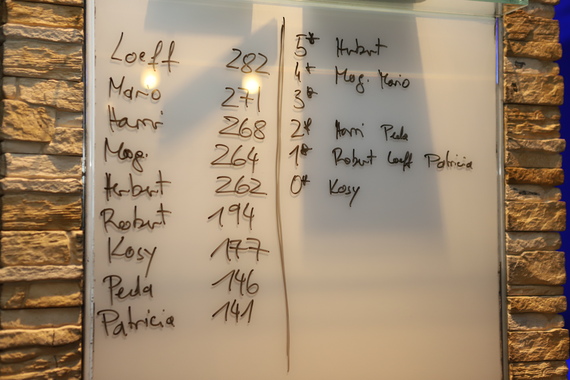 Loeff 282
Mario 271
Harri 268
Mag. 264
Herbert 262
Robert 194
Kosy 177
Peda 146
Patricia 141
5* Herbert
4* Mag. Mario
3*
2* Harri Peda
1* Robert Loeff Patricia
0* Kosy